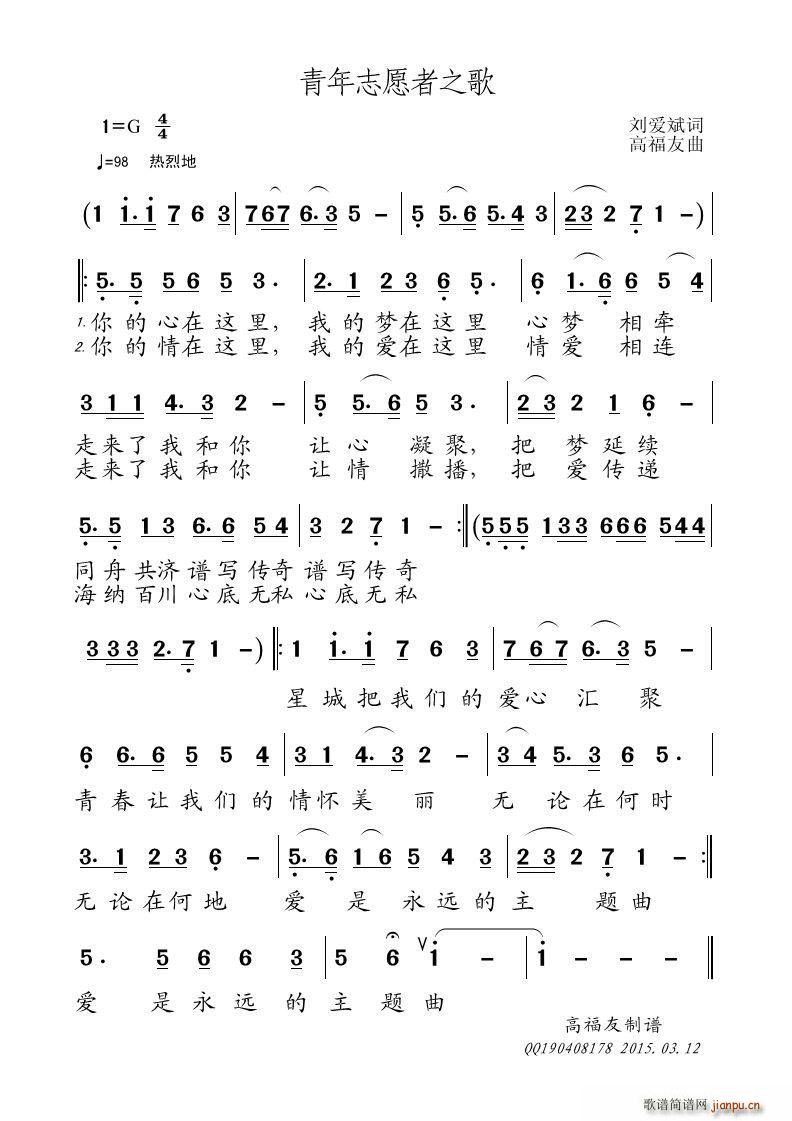 青年志愿者之歌
1=G 4/4
刘爱斌词
高福友曲
♩=98 热烈地
(1 1. 1 7 6 3 | 7 6 7 6. 3 5 - | 5 5. 6 5. 4 3 | 2 3 2 7 1 - )
‖: 5. 5 5 6 5 3. | 2. 1 2 3 6 5. | 6 1. 6 6 5 4 |
1.你的心在这里, 我的梦在这里 心梦 相牵
2.你的情在这里, 我的爱在这里 情爱 相连
3 1 1 4. 3 2 - | 5 5. 6 5 3. | 2 3 2 1 6 - |
走来了我和你 让心 凝聚, 把 梦延续
走来了我和你 让情 撒播, 把 爱传递
5. 5 1 3 6. 6 5 4 | 3 2 7 1 - :‖ (5 5 5 1 3 3 6 6 6 5 4 4 |
同舟共济谱写传奇谱写传奇
海纳百川心底无私心底无私
3 3 3 2. 7 1 - ) ‖: 1 1. 1 7 6 3 | 7 6 7 6. 3 5 - |
星城把我们的爱心 汇 聚
6 6. 6 5 5 4 | 3 1 4. 3 2 - | 3 4 5. 3 6 5. |
青春让我们的情怀美 丽 无 论在何时
3. 1 2 3 6 - | 5. 6 1 6 5 4 3 | 2 3 2 7 1 - :‖
无论在何地 爱 是 永远的主 题曲
5. 5 6 6 3 | 5 6 V 1 - | 1 - - - ‖
爱 是永远的主题曲
高福友制谱
QQ190408178 2015.03.12
歌谱简谱网 jianpu.cn